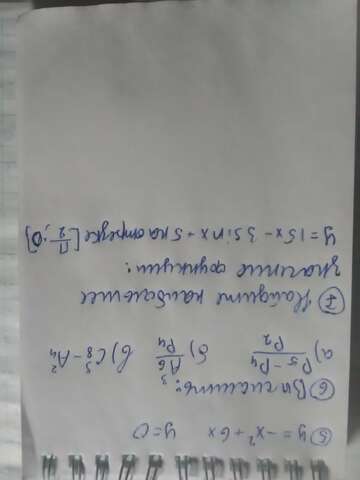 ⑤ y = -x² + 6x   y = 0
⑥ Вычислить:
а) (P₅ - P₄)/P₂   б) A₆³/P₄   в) C₈⁵ - A₄²
⑦ Найдите наибольшее
значение функции:
y = 15x - 3 sin x + 5 на отрезке [π/2; 0]